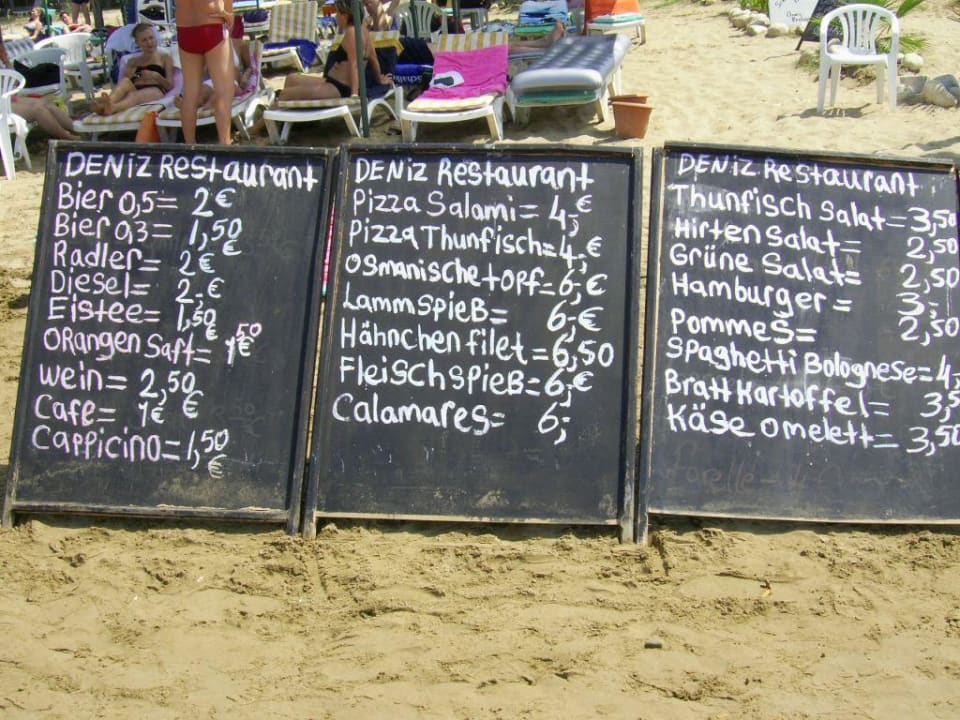 DENiZ REStaurant
Bier 0,5= 2€
Bier 0,3= 1,50 €
Radler= 2€
Diesel= 2,€
Eistee= 1,50 €
ORangen Saft= 1,50 €
wein= 2,50 €
Cafe= 1€
Cappicino=1,50 €
DENiZ REStaurant
Pizza Salami= 4,€
Pizza Thunfisch=4,€
OSmanische topf=6,-€
Lammspieß= 6,-€
Hähnchen filet=6,50
Fleischspieß=6,-€
Calamares= 6,-
DENiZ REStaurant
Thunfisch Salat=3,50
Hirten Salat= 2,50
Grüne Salat= 2,50
Hamburger= 3,-
PommeS= 2,50
Spaghetti Bolognese=4,
Bratt Kartoffel= 3,5
Käse omelett=3,50
forelle-4